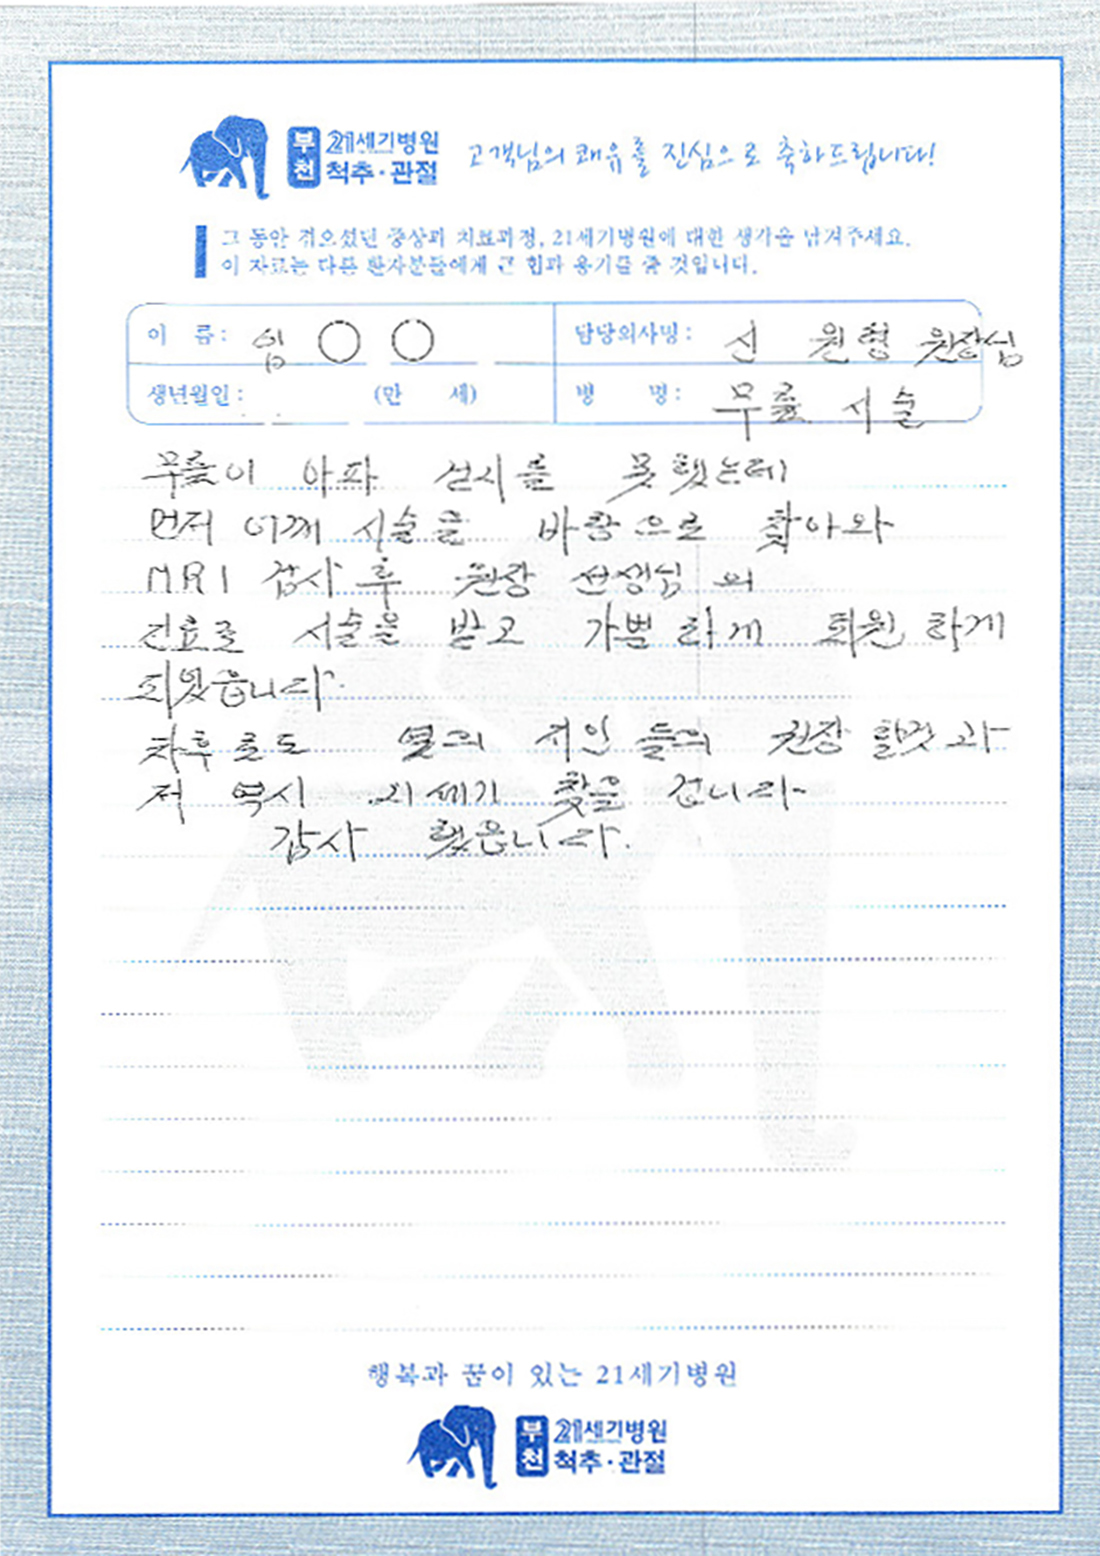 부천 21세기병원 척추·관절 고객님의 쾌유를 진심으로 축하드립니다!
그 동안 겪으셨던 증상과 치료과정, 21세기병원에 대한 생각을 남겨주세요.
이 자료는 다른 환자분들에게 큰 힘과 용기를 줄 것입니다.
이 름 : 임 ○ ○ 담당의사명 : 신 원형 원장님
생년월일 : (만 세) 병 명 : 무릎 시술
무릎이 아파 걷지를 못했는데
먼저 어깨 시술을 바탕으로 찾아와
MRI 검사 후 원장 선생님 의
진료로 시술을 받고 가볍 하게 퇴원 하게
되었읍니다.
차후로도 지인 들의 권장 할것 과
저 역시 21세기 찾을 겁니다
감사 했읍니다.
행복과 꿈이 있는 21세기병원
부천 21세기병원 척추·관절